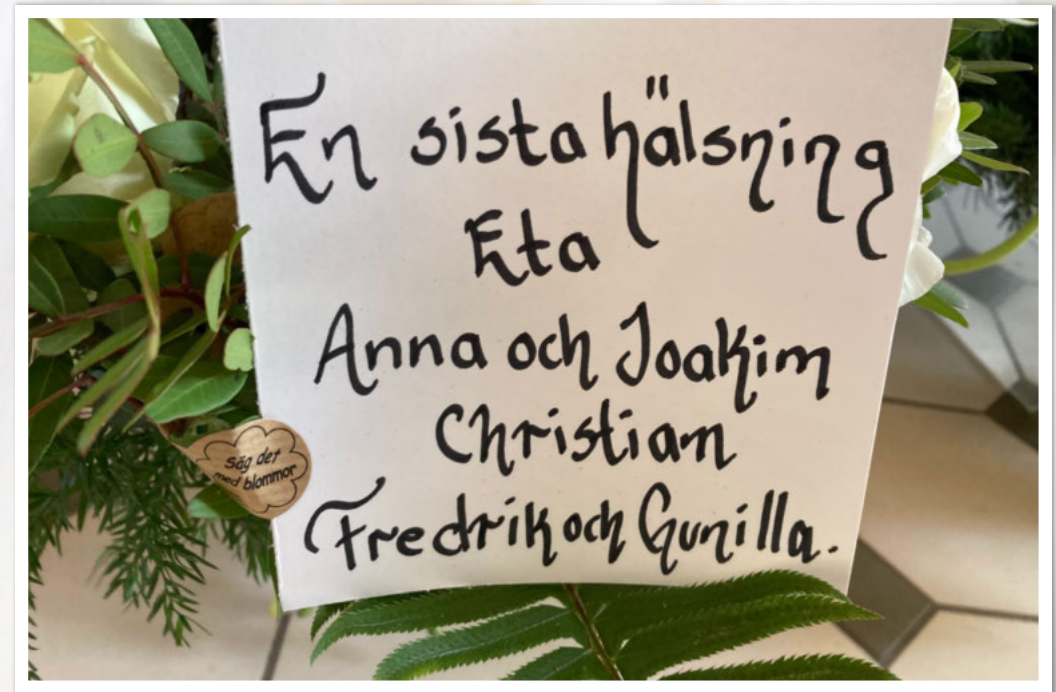 En sista hälsning
Eta
Anna och Joakim
Christian
Fredrik och Gunilla.
säg det
med blommor